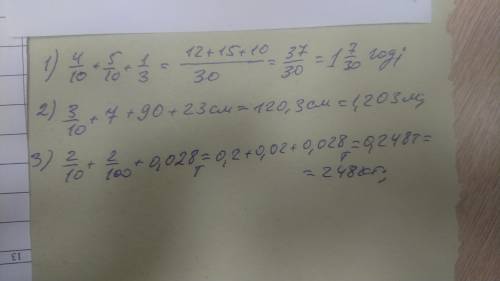 1) 4/10 + 5/10 + 1/3 = (12+15+10)/30 = 37/30 = 1 7/30 годі
2) 3/10 + 7 + 90 + 23см = 120,3см = 1,203м;
3) 2/10 + 2/100 + 0,028т = 0,2 + 0,02 + 0,028т = 0,248т =
= 248кг;
13